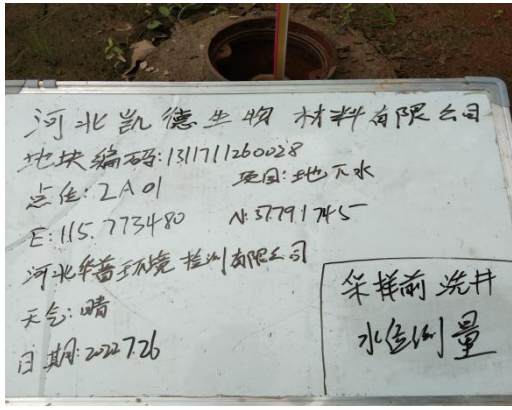 河北凯德生物材料有限公司
地块编码:1311711260028
点位:2A01 项目:地下水
E:115.773480 N:37.791745
河北华普环境检测有限公司
天气:晴
日期:2022.7.26
采样前洗井
水位测量